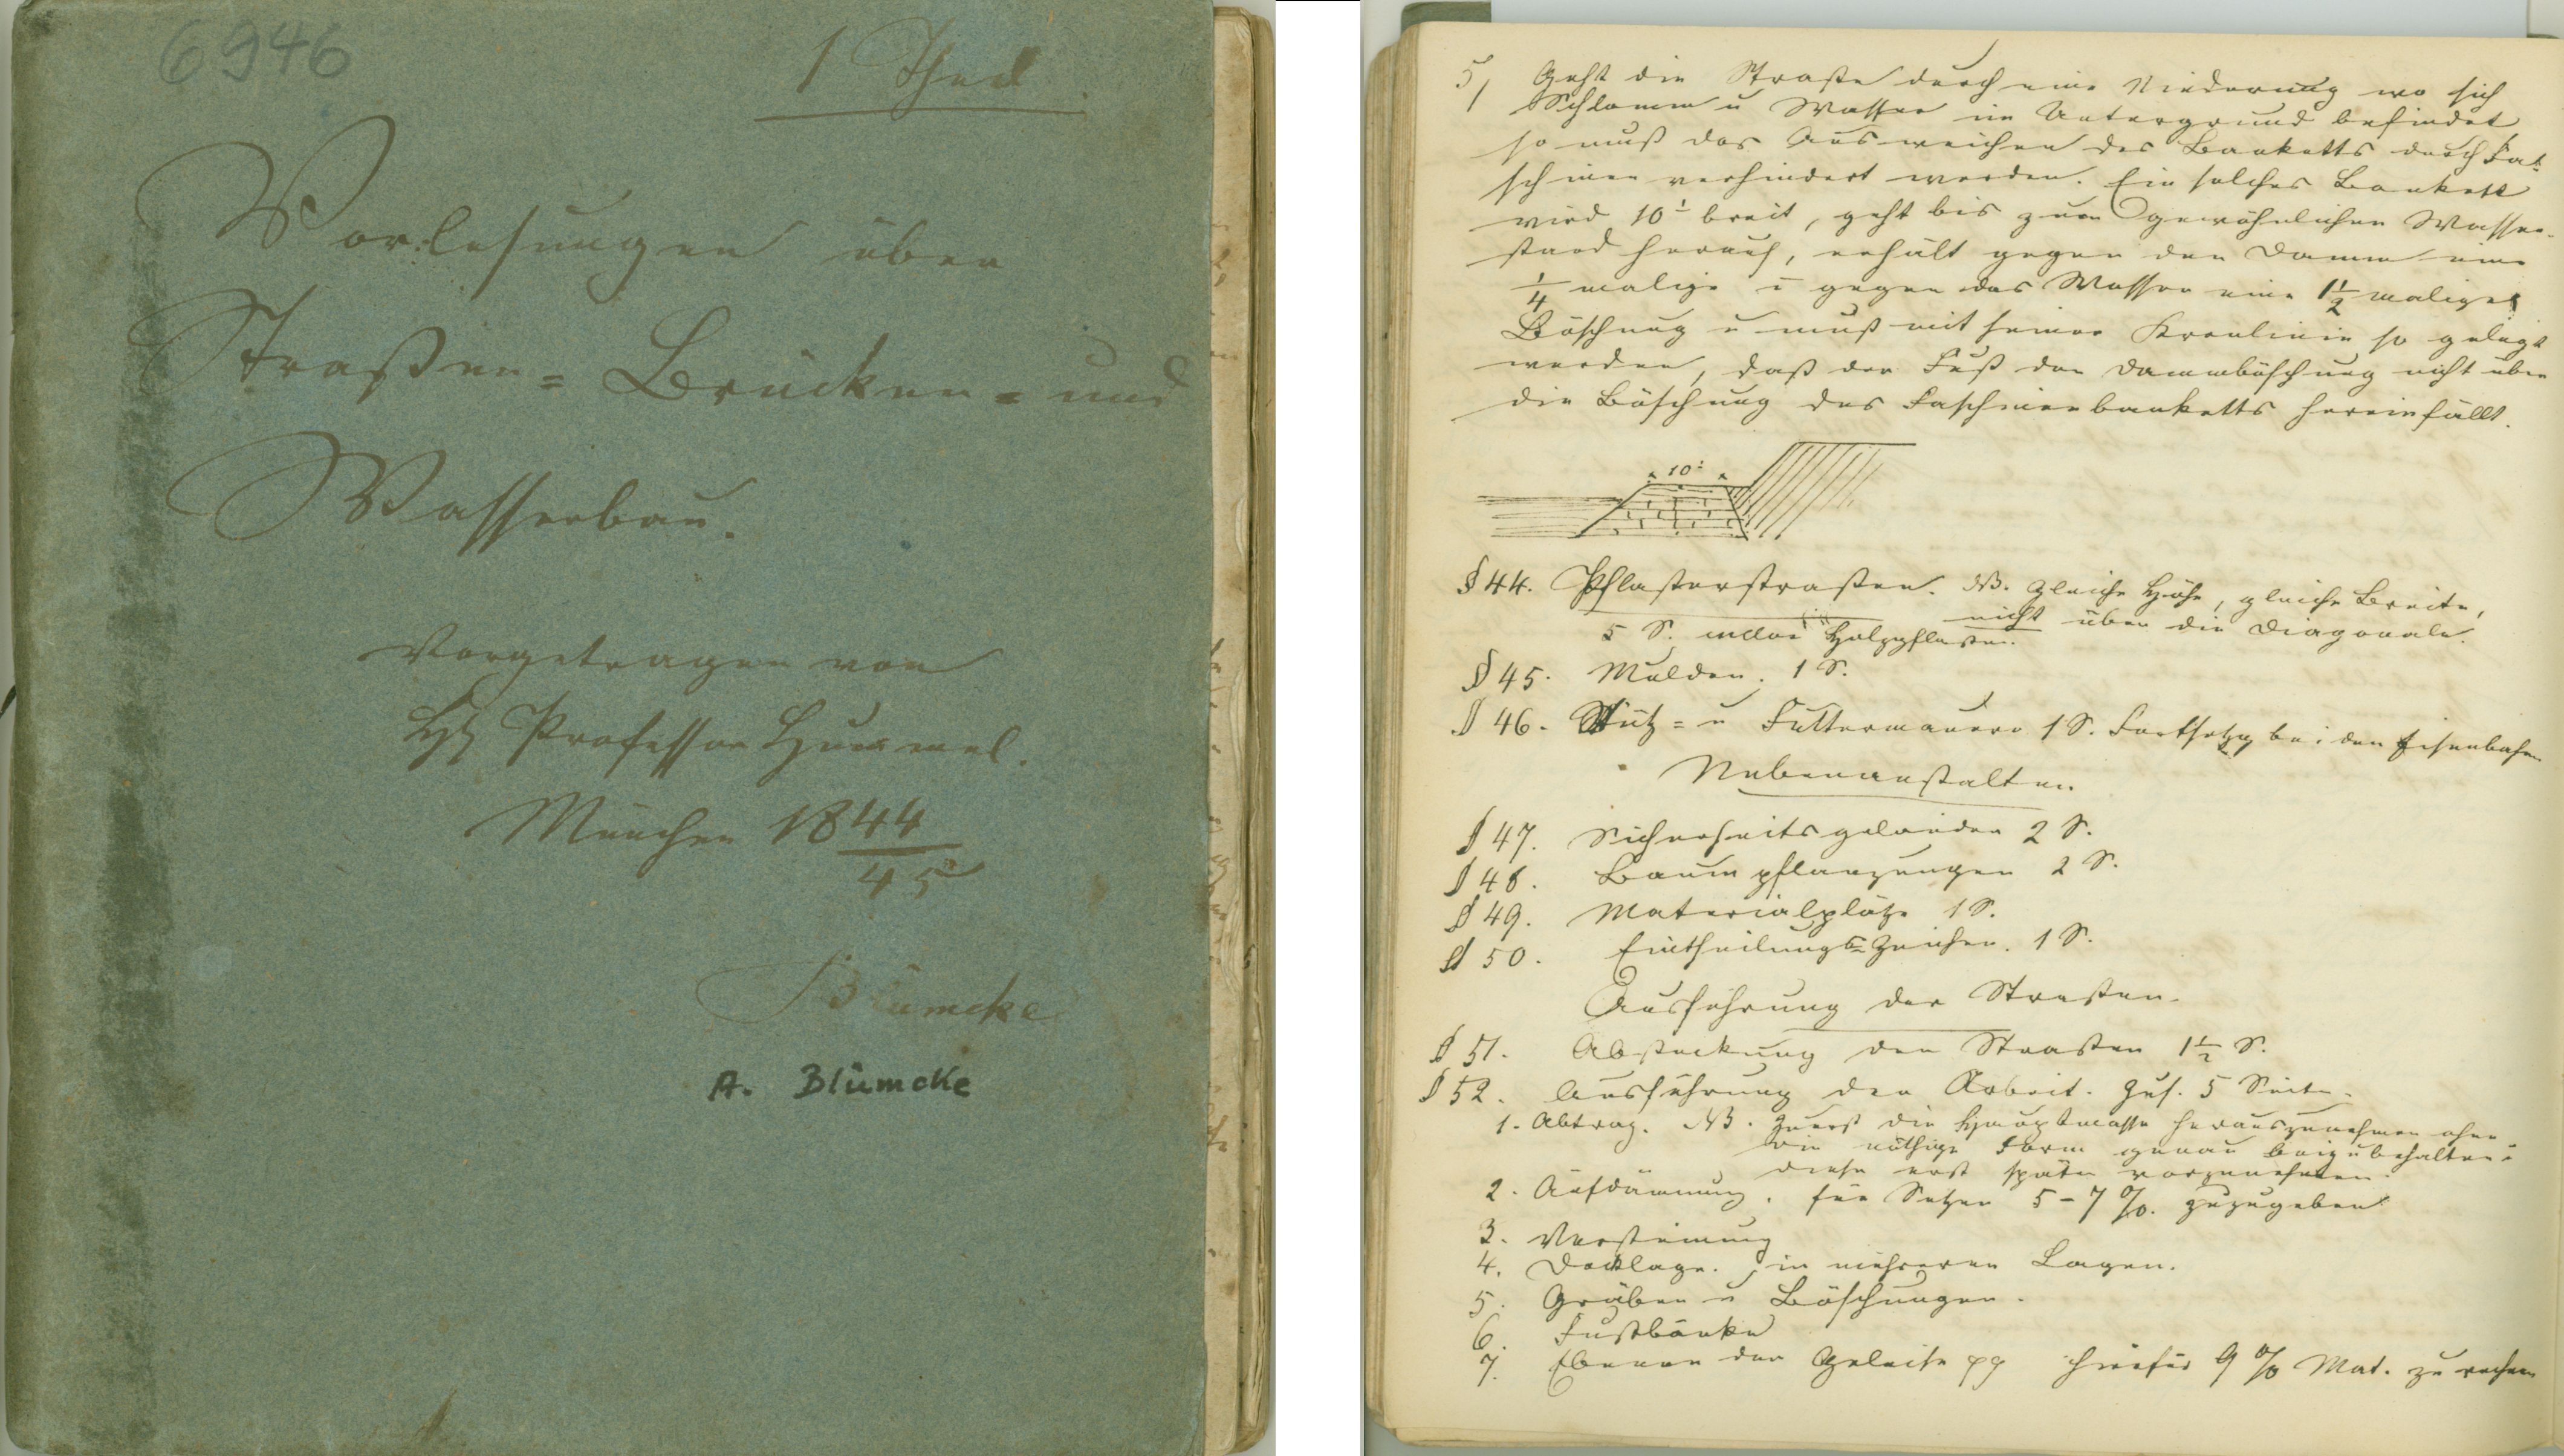 6946
1 Theil.
Vorlesungen über
Straßen= Brücken= und
Wasserbau.
Vorgetragen von
Professor Hummel.
München 1844
45
Blümcke
A. Blümcke
5/ Geht die Straße durch eine Niederung wo sich
Schlamm u Wasser im Untergrund befindet
so muß das Ausweichen des Banketts durch Fa=
schinen verhindert werden. Ein solches Bankett
wird 10' breit, geht bis zum gewöhnlichen Wasser-
stand herauf, erhält gegen den Damm eine
1/4 malige u gegen das Wasser eine 1 1/2 malige
Böschung u muß mit seiner Kronlinie so gelegt
werden, daß der Fuß der Dammböschung nicht über
die Böschung des Faschinenbanketts hereinfällt.
10'
§ 44. Pflasterstraßen. NB. gleiche Höhe, gleiche Breite,
nicht über die Diagonale.
5 S. Holzpflaster.
§ 45. Mulden. 1 S.
§ 46. Stütz= u Futtermauern 1 S. Fortsetzg bei den Eisenbahn
Nebenanstalten.
§ 47. Sicherheitsgeländer 2 S.
§ 48. Baumpflanzungen 2 S.
§ 49. Materialplätze 1 S.
§ 50. Eintheilungs=Zeichen. 1 S.
Ausführung der Straßen.
§ 51. Absteckung der Straßen 1 1/2 S.
§ 52. Ausführung der Arbeit. 5 Seite.
1. Abtrag. NB. Zuerst die Hauptmasse herauszunehmen ohne
die nöthige Form genau beizubehalten;
diese erst später vorzunehmen.
2. Aufdämmung. für Setzen 5-7 %. zuzugeben
3. Versteinung
4. Decklage. in mehreren Lagen.
5. Gräben u Böschungen.
6. Fußbänke
7. Ebenen der Geleise pp hiefür 9 % Mat. zu rechnen